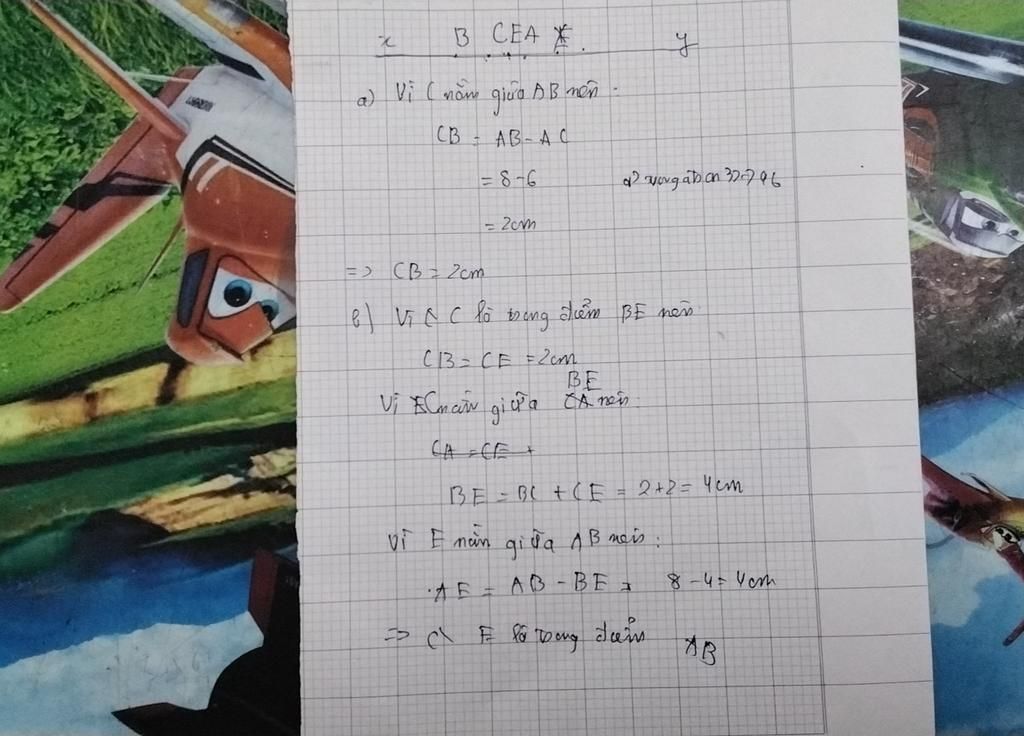 x B C E A y
a) Vì C nằm giữa AB nên
CB = AB - AC
= 8-6
= 2cm
=> CB = 2cm
b) Vì C là trung điểm BE nên
CB = CE = 2cm
Vì C nằm giữa BE nên
CA = CE +
BE = BC + CE = 2+2 = 4cm
Vì E nằm giữa AB nên:
AE = AB - BE = 8-4=4cm
=> E là trung điểm AB